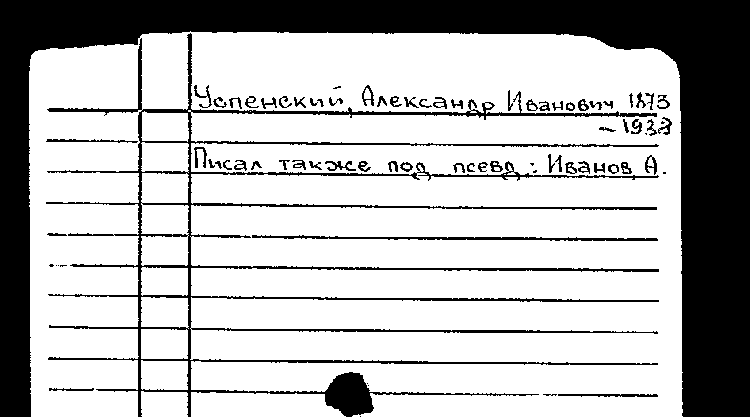 Успенский, Александр Иванович 1873
– 1938
Писал также под псевд.: Иванов, А.